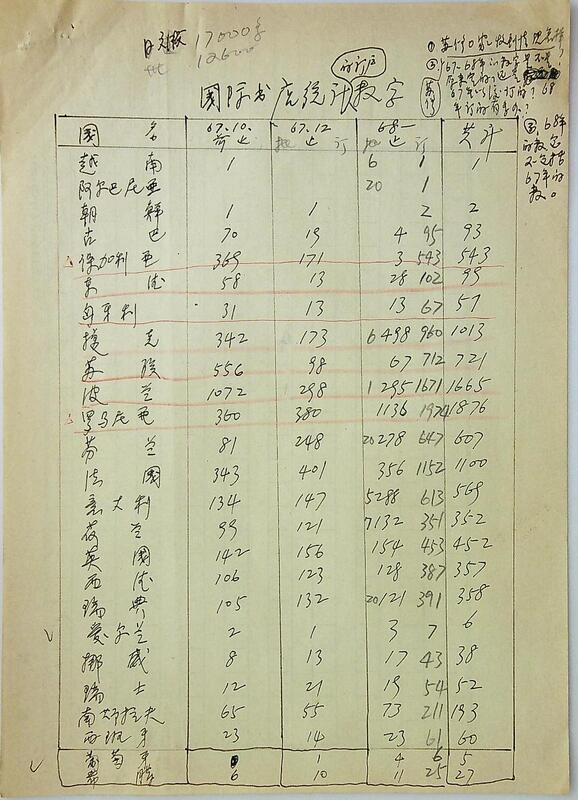 17000多
12600
的订户
国际书店统计数字
① 苏修口家
② 67-68年的数字
国名 67.10. 67.12 68— 共计
止 批 止 订 批 止 订
越南 1 6 1 1
阿尔巴尼亚 20 1
朝鲜 1 1 2 2
古巴 70 19 4 95 93
保加利亚 369 171 3 543 543
东德 58 13 28 102 99
匈牙利 31 13 13 67 57
捷克 342 173 6 498 960 1013
苏联 556 98 67 712 721
波兰 1072 298 1 295 1671 1665
罗马尼亚 360 380 1136 1974 1876
芬兰 81 248 20 278 647 607
法國 343 401 356 1152 1100
意大利 134 147 5 288 613 569
荷兰 99 121 7 132 351 352
英國 142 156 154 453 452
西德 106 123 128 387 357
瑞典 105 132 20 121 391 358
爱尔兰 2 1 3 7 6
挪威 8 13 17 43 38
瑞士 12 21 19 54 52
南斯拉夫 65 55 73 211 193
西班牙 23 14 23 61 60
葡萄牙 1 4 6 5
希腊 6 10 11 25 27